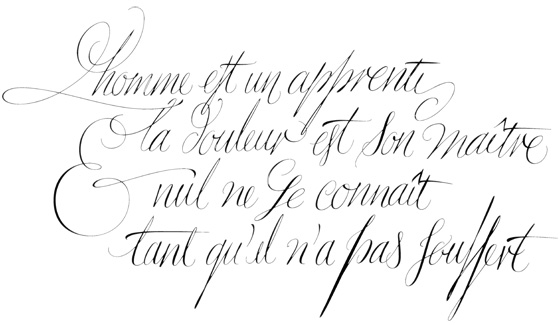 L'homme est un apprenti
la Douleur est son maître
& nul ne se connaît
tant qu'il n'a pas souffert